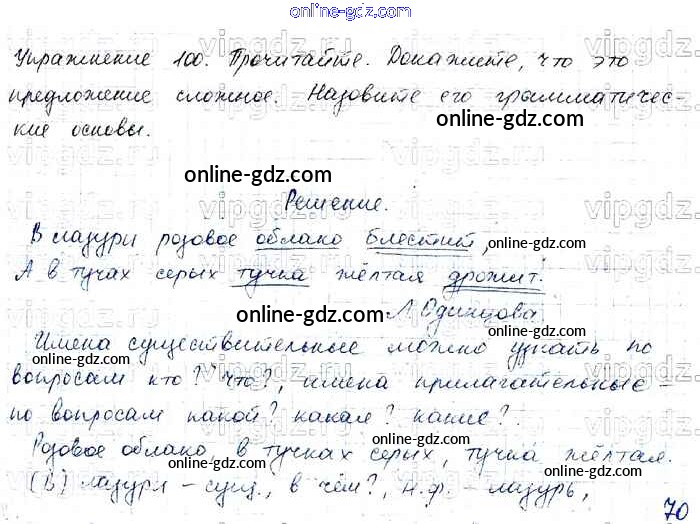 online-gdz.com
Упражнение 100. Прочитайте. Докажите, что это
предложение сложное. Назовите его грамматичес-
кие основы.
online-gdz.com
Решение.
В лазури розовое облако блестит,
online-gdz.com
А в тучах серых тучка жёлтая дрожит.
online-gdz.com
Л. Одинцова
Имена существительные можно узнать по
online-gdz.com
вопросам кто? что?, имена прилагательные –
по вопросам какой? какая? какие?
online-gdz.com
Розовое облако, в тучках серых, тучка жёлтая.
online-gdz.com
(В) лазури – сущ., в чём?, н.ф. – лазурь,
online-gdz.com
70